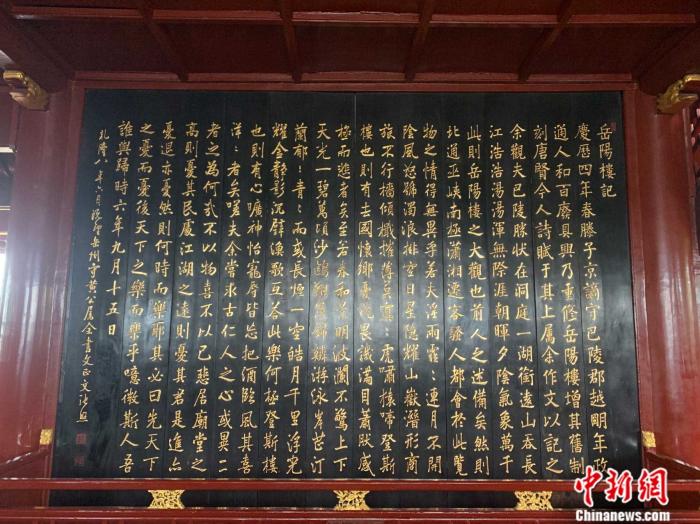 岳陽樓記
慶曆四年春滕子京謫守巴陵郡越明年政
通人和百廢具興乃重修岳陽樓增其舊制
刻唐賢今人詩賦于其上屬余作文以記之
余觀夫巴陵勝狀在洞庭一湖銜遠山吞長
江浩浩湯湯渾無際涯朝暉夕陰氣象萬千
此則岳陽樓之大觀也前人之述備矣然則
北通巫峽南極瀟湘遷客騷人都會於此覽
物之情得無異乎若夫淫雨霏〻連月不開
陰風怒號濁浪排空日星隱耀山嶽潛形商
旅不行檣傾檝摧薄暮冥〻虎嘯猿啼登斯
樓也則有去國懷鄉憂讒畏譏滿目蕭然感
極而悲者矣至若春和景明波瀾不驚上下
天光一碧萬頃沙鷗翔集錦鱗游泳岸芷汀
蘭郁〻青〻而或長煙一空皓月千里浮光
耀金靜影沉璧漁歌互答此樂何極登斯樓
也則有心曠神怡寵辱皆忘把酒臨風其喜
洋〻者矣嗟夫余嘗求古仁人之心或異二
者之為何哉不以物喜不以己悲居廟堂之
高則憂其民處江湖之遠則憂其君是進亦
憂退亦憂然則何時而樂耶其必曰先天下
之憂而憂後天下之樂而樂乎噫微斯人吾
誰與歸時六年九月十五日
乾隆八年六月岳州守黃公屬余書文正文張照
中新网
Chinanews.com